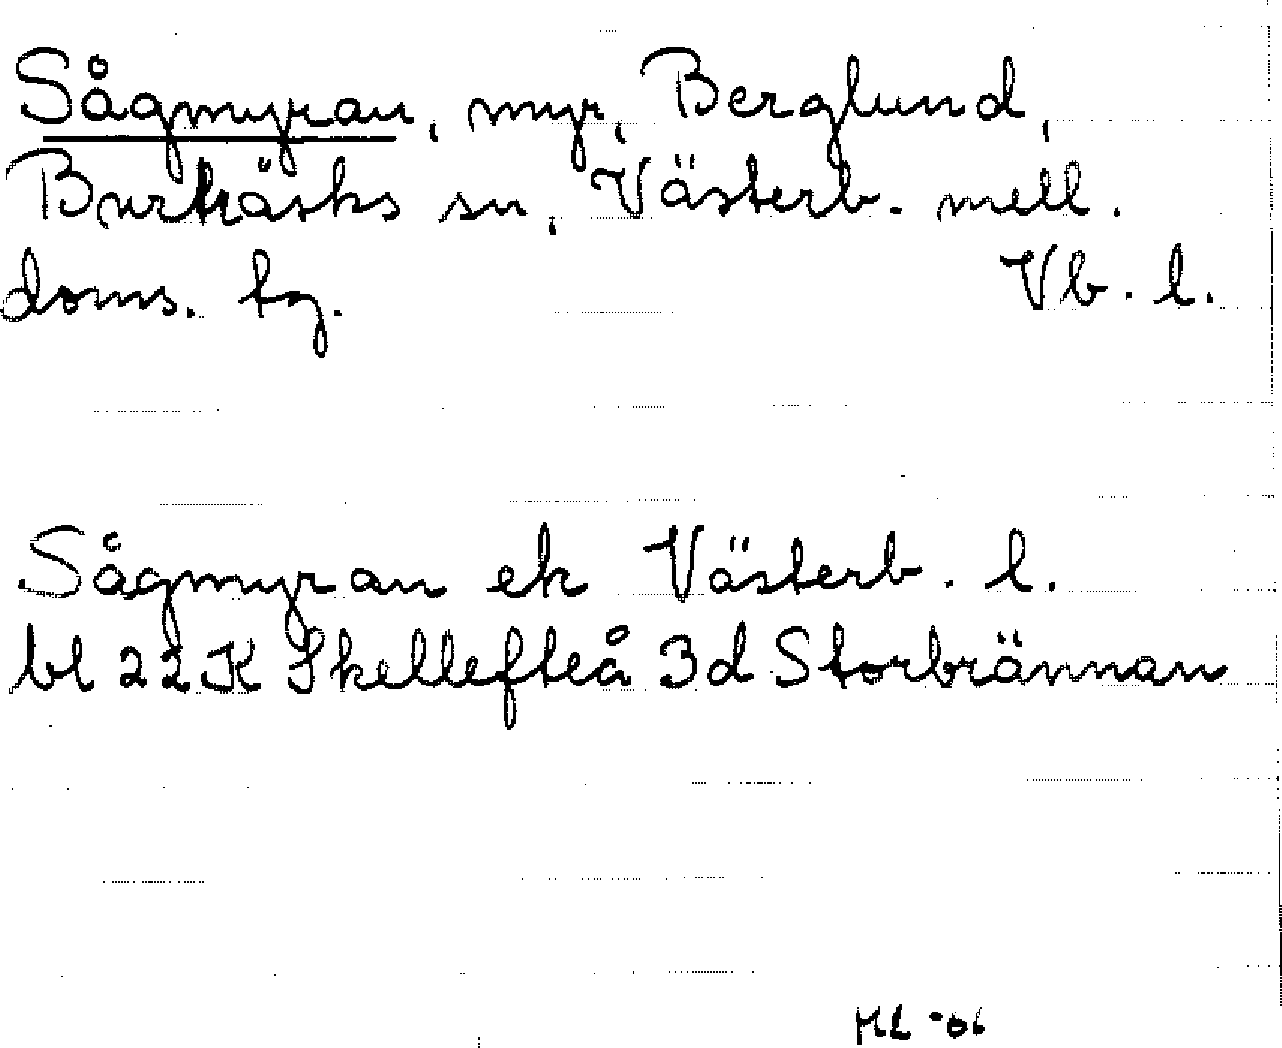 Sågmyran, myr, Berglund,
Burträsks sn, Västerb. mell.
doms. tg. Vb. l.
Sågmyran ek Västerb. l.
bl 22K Skellefteå 3d Storbrännan
ML -06